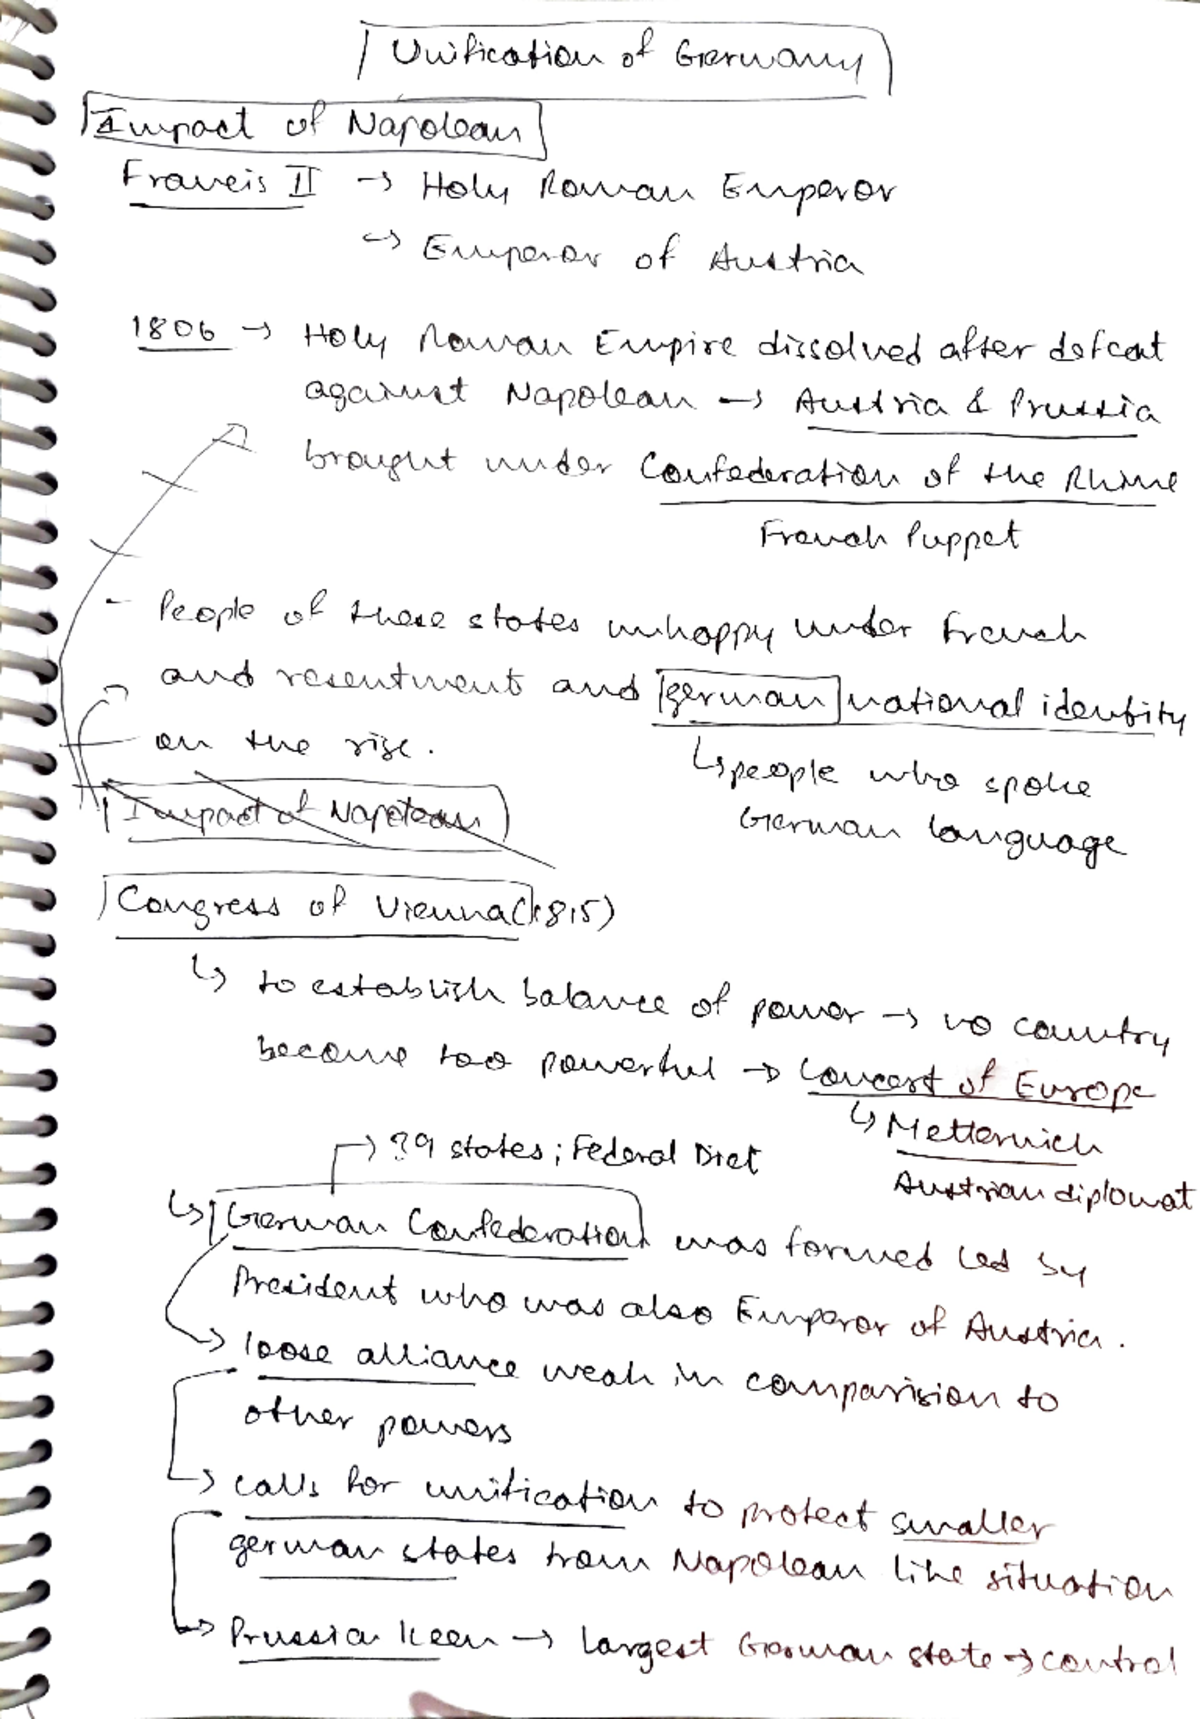 Unification of Germany
Impact of Napolean
Francis II → Holy Roman Emperor
↪ Emperor of Austria
1806 → Holy Roman Empire dissolved after defeat
against Napolean → Austria & Prussia
brought under Confederation of the Rhine
French Puppet
- People of these states unhappy under French
and resentment and german national identity
on the rise.
↳ people who spoke
German language
Impact of Napolean
Congress of Vienna (1815)
↳ to establish balance of power → no country
become too powerful → Concert of Europe
↳ Metternich
Austrian diplomat
→ 39 states; Federal Diet
↳ German Confederation was formed led by
President who was also Emperor of Austria.
→ loose alliance weak in comparision to
other powers
→ calls for unification to protect smaller
german states from Napolean like situation
→ Prussia keen → largest German state → control